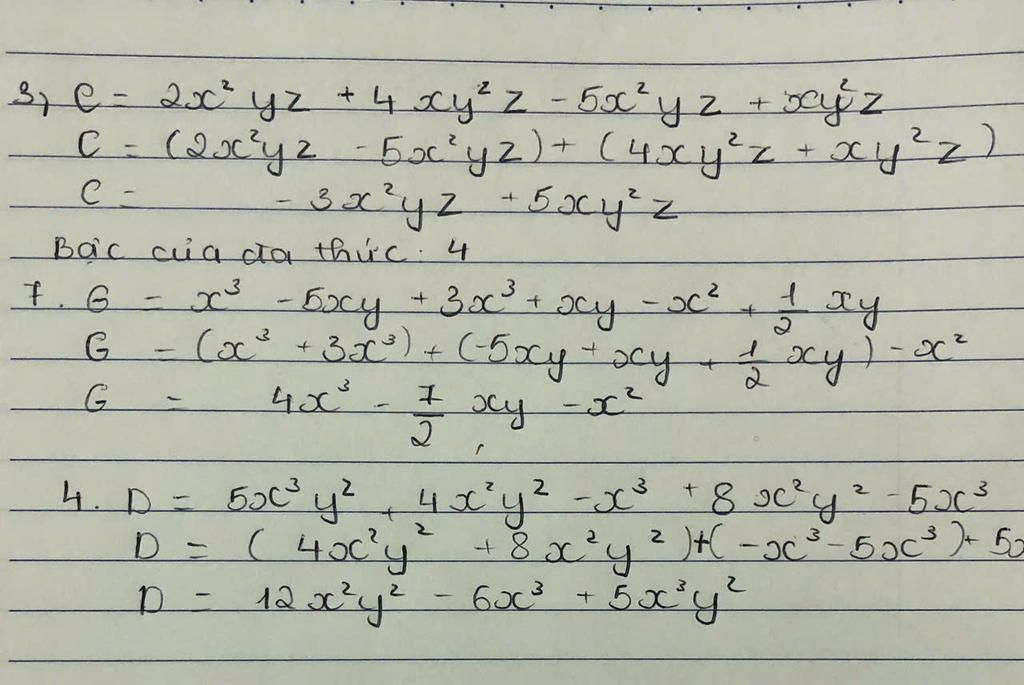 3, C = 2x² yz + 4 xy² z - 5x² y z + xy² z
C = (2x²yz - 5x²yz) + (4xy²z + xy²z)
C = - 3x²yz + 5xy²z
Bậc của đa thức: 4
7. G = x³ - 5xy + 3x³ + xy - x² + 1/2 xy
G = (x³ + 3x³) + (-5xy + xy + 1/2 xy) - x²
G = 4x³ - 7/2 xy - x²
4. D = 5x³y² + 4x²y² - x³ + 8x²y² - 5x³
D = (4x²y² + 8x²y²) + (-x³ - 5x³) + 5x
D = 12x²y² - 6x³ + 5x³y²